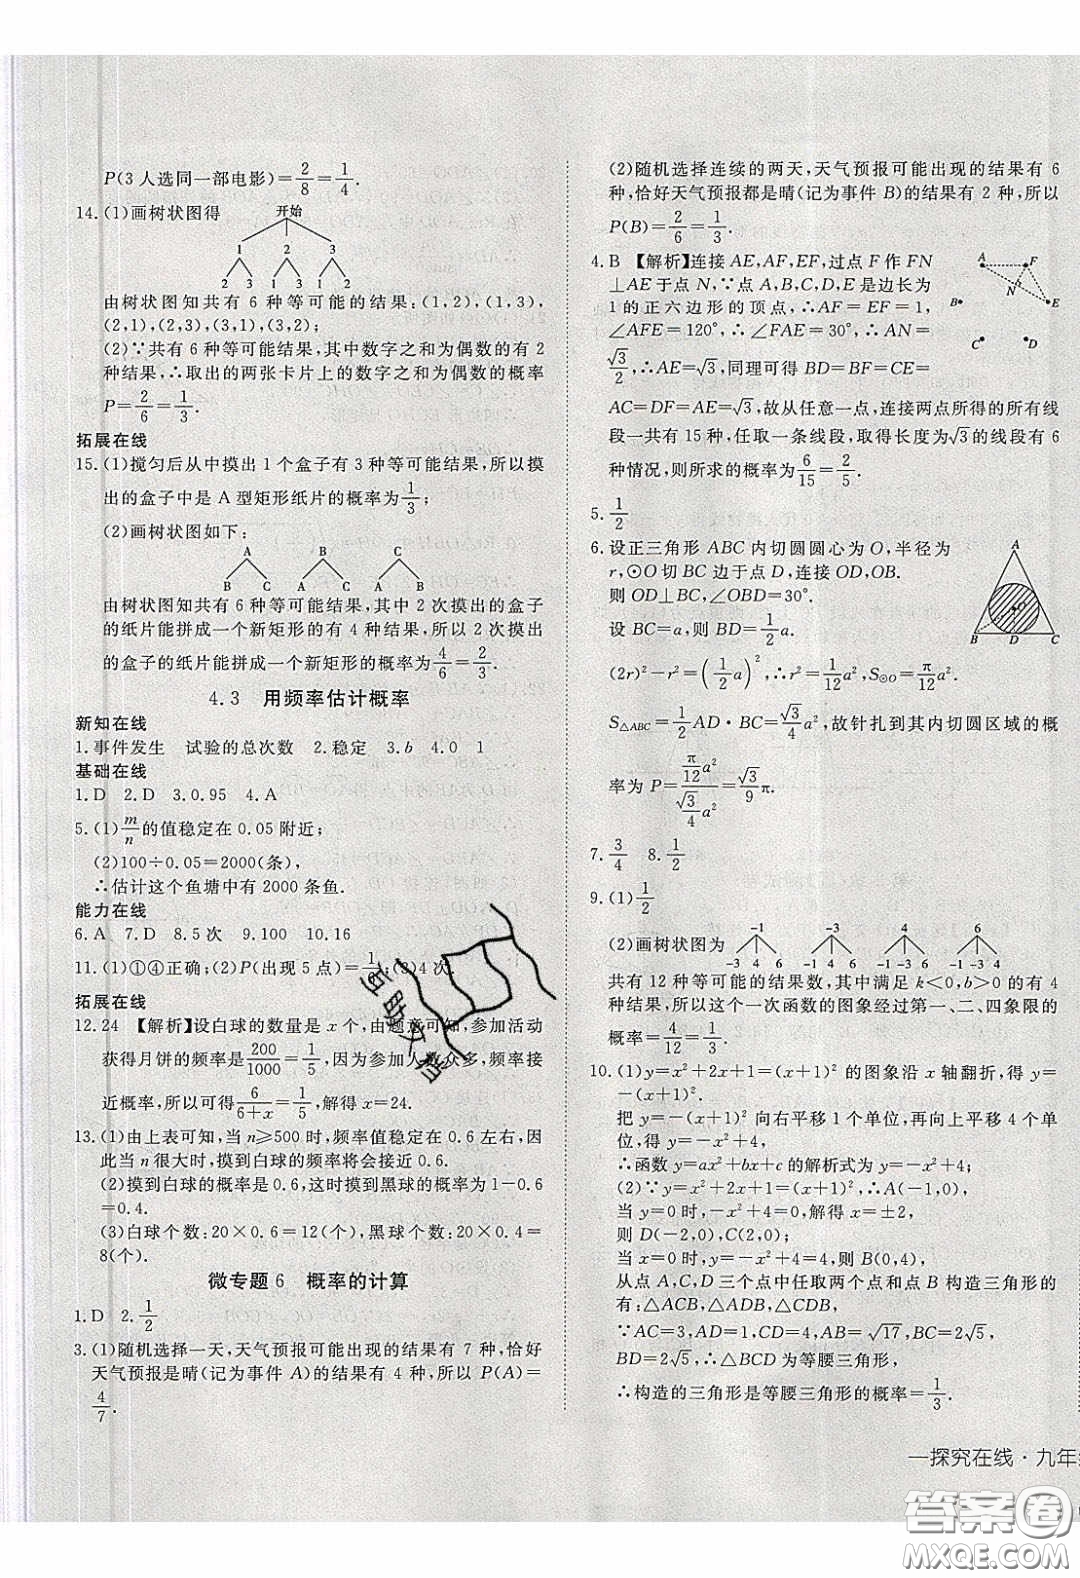 P(3人选同一部电影)=2/8=1/4.
14.(1)画树状图得
开始
1 2 3
2 3 1 3 1 2
由树状图知共有6种等可能的结果:(1,2),(1,3),
(2,1),(2,3),(3,1),(3,2);
(2)∵共有6种等可能结果,其中数字之和为偶数的有2
种结果,∴取出的两张卡片上的数字之和为偶数的概率
P=2/6=1/3.
拓展在线
15.(1)搅匀后从中摸出1个盒子有3种等可能结果,所以摸
出的盒子中是A型矩形纸片的概率为1/3;
(2)画树状图如下:
A B C
B C A C A B
由树状图知共有6种等可能结果,其中2次摸出的盒子
的纸片能拼成一个新矩形的有4种结果,所以2次摸出
的盒子的纸片能拼成一个新矩形的概率为4/6=2/3.
4.3 用频率估计概率
新知在线
1.事件发生 试验的总次数 2.稳定 3.b 4.0 1
基础在线
1.D 2.D 3.0.95 4.A
5.(1)m/n的值稳定在0.05附近;
(2)100÷0.05=2000(条),
∴估计这个鱼塘中有2000条鱼.
能力在线
6.A 7.D 8.5次 9.100 10.16
11.(1)①④正确;(2)P(出现5点)=1/6;(3)4次.
拓展在线
12.24 【解析】设白球的数量是x个,由题意可知,参加活动
获得月饼的频率是200/1000=1/5,因为参加人数众多,频率接
近概率,所以可得6/(6+x)=1/5,解得x=24.
13.(1)由上表可知,当n≥500时,频率值稳定在0.6左右,因
此当n很大时,摸到白球的频率将会接近0.6.
(2)摸到白球的概率是0.6,这时摸到黑球的概率为1-0.6
=0.4.
(3)白球个数:20×0.6=12(个),黑球个数:20×0.4=
8(个).
微专题6 概率的计算
1.D 2.1/2
3.(1)随机选择一天,天气预报可能出现的结果有7种,恰好
天气预报是晴(记为事件A)的结果有4种,所以P(A)=
4/7.
(2)随机选择连续的两天,天气预报可能出现的结果有6
种,恰好天气预报都是晴(记为事件B)的结果有2种,所以
P(B)=2/6=1/3.
4.B 【解析】连接AE,AF,EF,过点F作FN
⊥AE于点N,∵点A,D,E是边长为
1的正六边形的顶点,∴AF=EF=1,
∠AFE=120°,∴∠FAE=30°,∴AN=
√3/2,∴AE=√3,同理可得BD=BF=CE=
AC=DF=AE=√3,故从任意一点,连接两点所得的所有线
段一共有15种,任取一条线段,取得长度为√3的线段有6
种情况,则所求的概率为6/15=2/5.
A F
N
B E
C D
5.1/2
6.设正三角形ABC内切圆圆心为O,半径为
r,⊙O切BC边于点D,连接OD,OB.
则OD⊥BC,∠OBD=30°.
设BC=a,则BD=1/2a.
(2r)²-r²=(1/2a)²,∴r²=1/12a²,S⊙O=π/12a²,
S△ABC=1/2AD·BC=√3/4a²,故针扎到其内切圆区域的概
率为P=(π/12a²)/(√3/4a²)=√3/9π.
A
O
B D C
7.3/4 8.1/2
9.(1)1/2
(2)画树状图为
-1 -3 4 6
-3 4 6 -1 4 6 -1 -3 6 -1 -3 4
共有12种等可能的结果数,其中满足k<0,b>0的有4
种结果,所以这个一次函数的图象经过第一、二、四象限的
概率=4/12=1/3.
10.(1)y=x²+2x+1=(x+1)²的图象沿x轴翻折,得y=
-(x+1)².
把y=-(x+1)²向右平移1个单位,再向上平移4个单
位,得y=-x²+4,
∴函数y=ax²+bx+c的解析式为y=-x²+4;
(2)∵y=x²+2x+1=(x+1)²,∴A(-1,0),
当y=0时,-x²+4=0,解得x=±2,
则D(-2,0),C(2,0);
当x=0时,y=-x²+4=4,则B(0,4),
从点A,C,D三个点中任取两个点和点B构造三角形的
有:△ACB,△ADB,△CDB,
∵AC=3,AD=1,CD=4,AB=√17,BC=2√5,
BD=2√5,∴△BCD为等腰三角形,
∴构造的三角形是等腰三角形的概率=1/3.
一探究在线·九年
答案圈
MXQE.COM